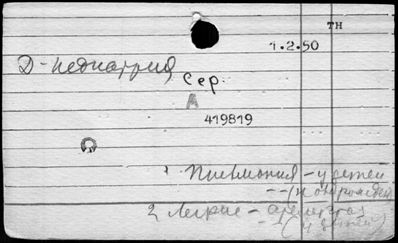 TH
1.2.50
Д-педиатрия,
Сер.
А
419819
Ω
1 Пневмония - у детей
-- (новорожден
2 Легкие -
-- (у детей)